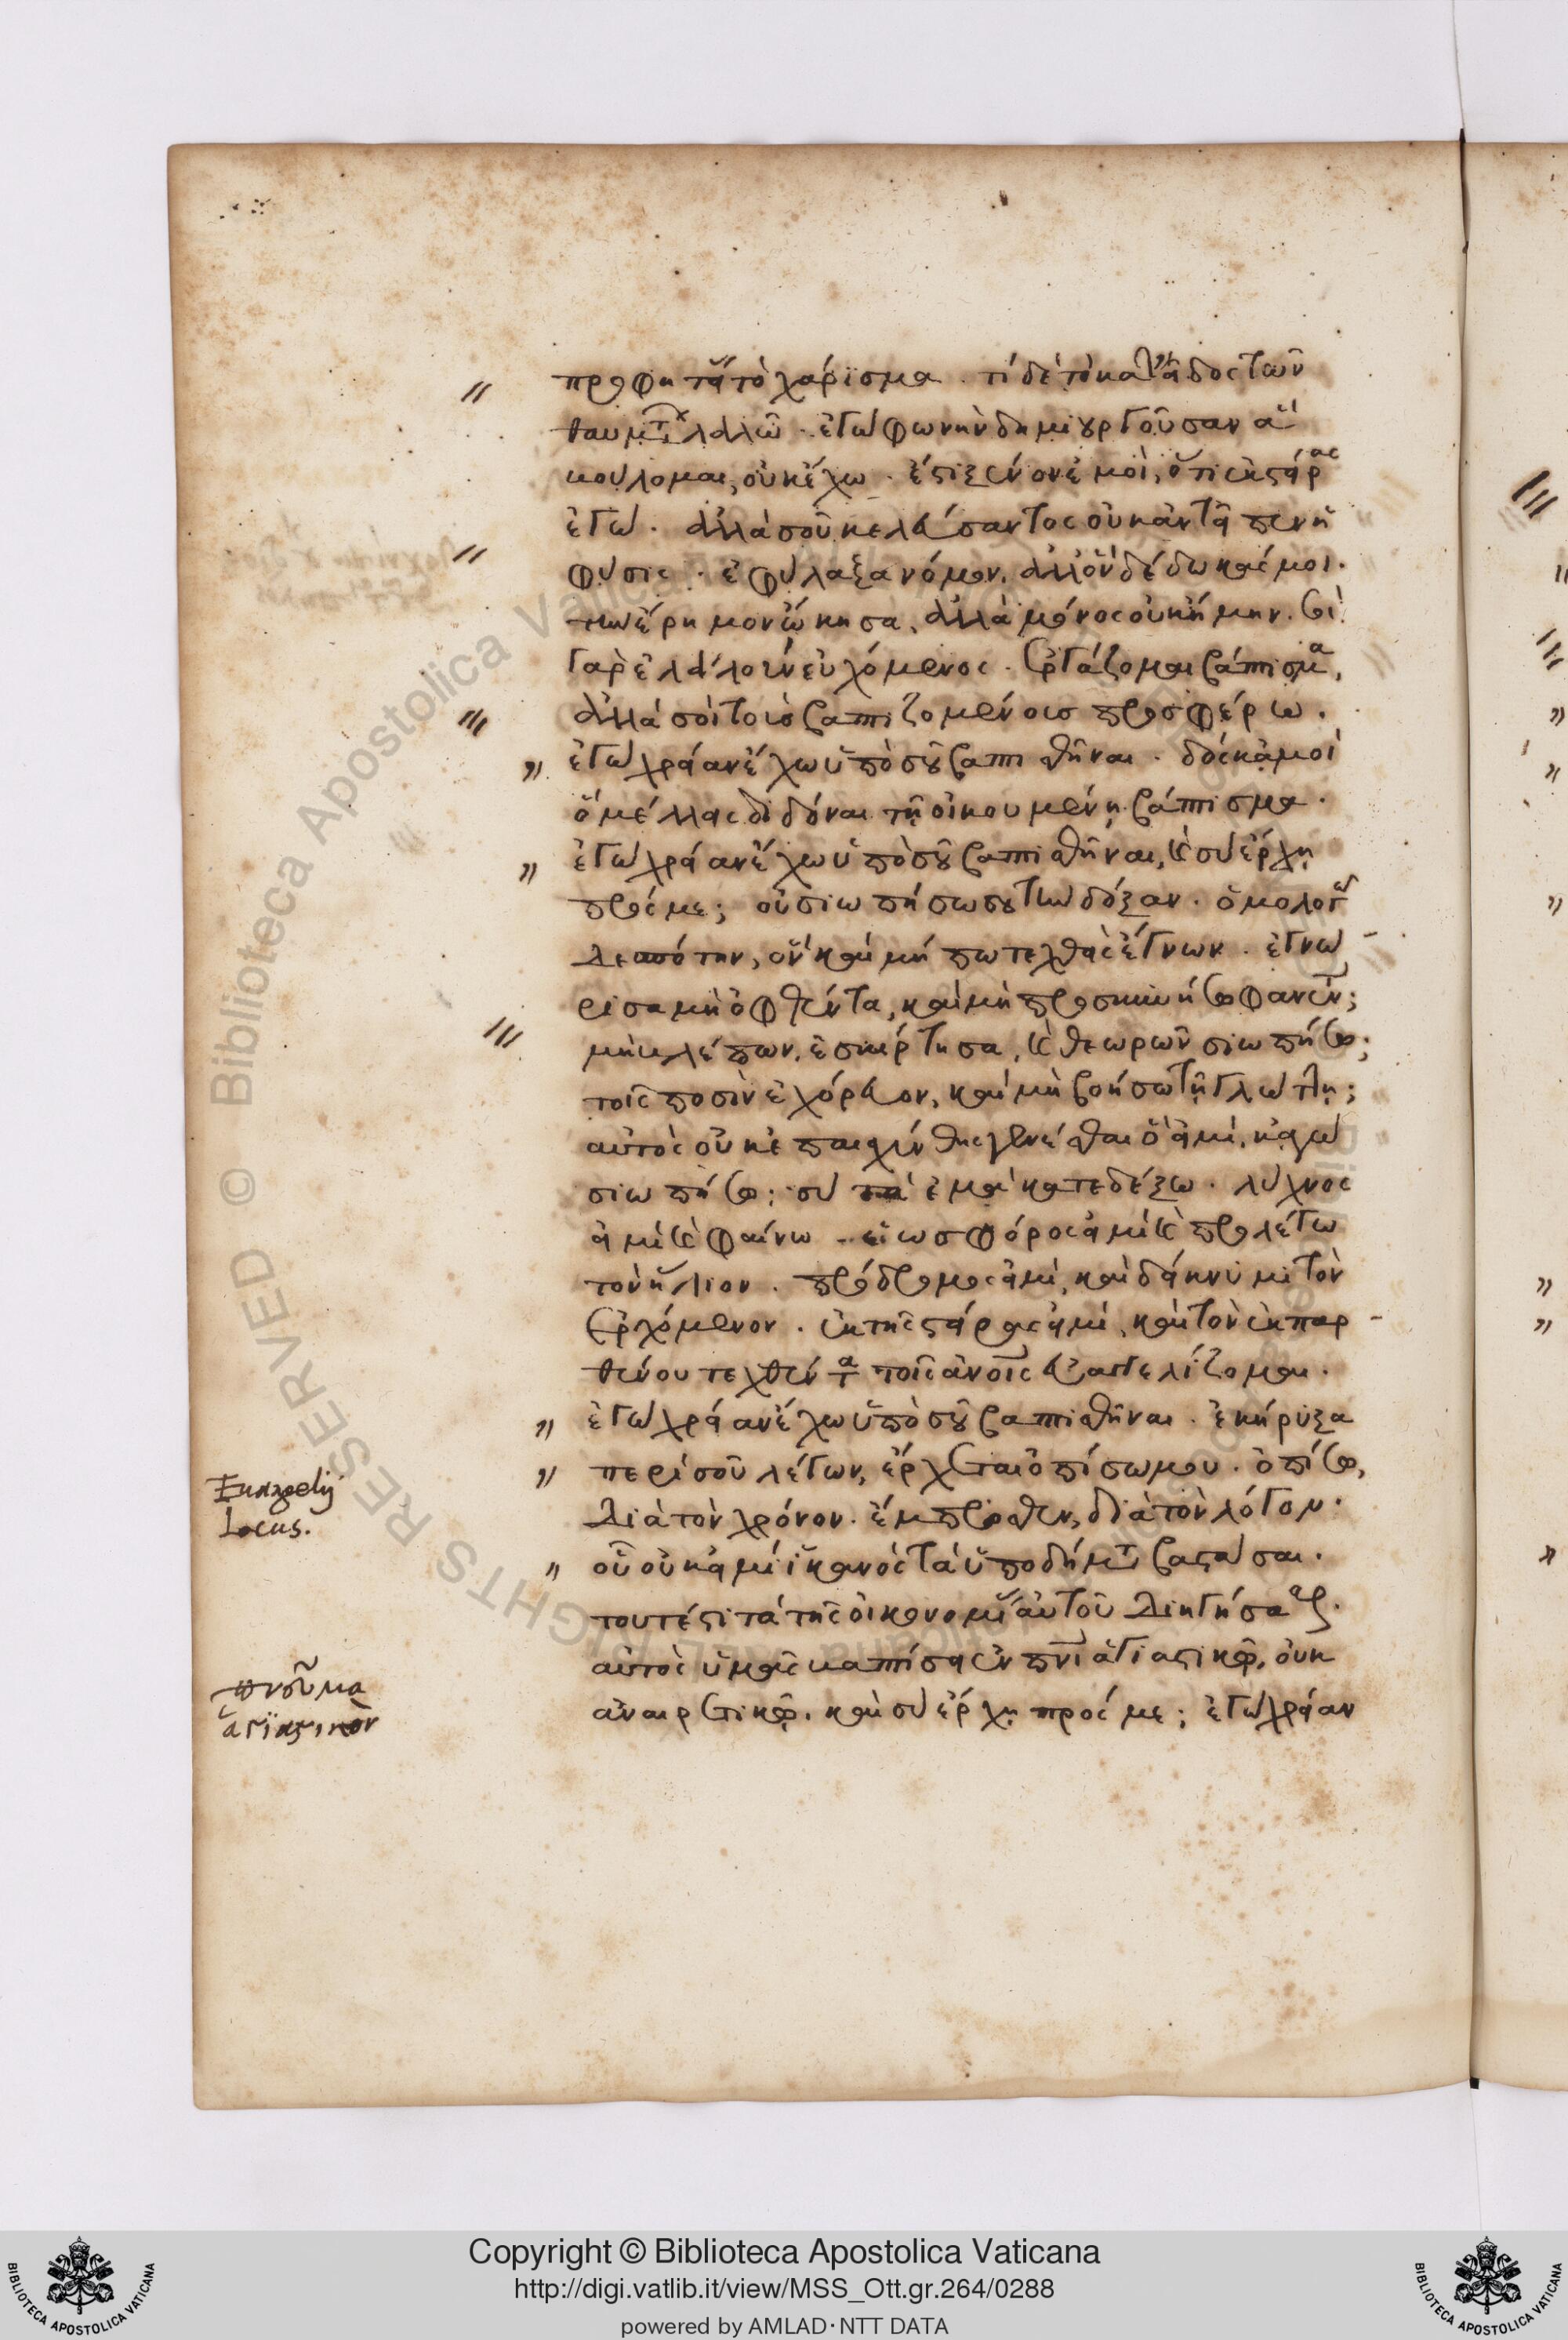 προφητείας τὸ χάρισμα. τί δὲ τὸ κατ᾽ εἶδος τῶν
θαυμάτων λαλῶ. ἐγὼ φωνὴν δημιουργοῦσαν ἃ
βούλομαι, οὐκ ἔχω. ἔστι ξένον ἐμοί, ὅτι ἐκ στείρας
ἐγώ. ἀλλὰ σοῦ κελεύσαντος οὐκ ἀντεῖπεν ἡ
φύσις. ἐφύλαξα νόμον, ἀλλ᾽ ὃν δέδωκάς μοι.
τὴν ἔρημον ᾤκησα, ἀλλὰ μόνος οὐκ ἤμην. σοὶ
γὰρ ἐλάλουν εὐχόμενος. ἐργάζομαι βάπτισμα,
ἀλλὰ σὲ τοῖς βαπτιζομένοις προσφέρω.
ἐγὼ χρείαν ἔχω ὑπὸ σοῦ βαπτισθῆναι. δὸς κἀμοὶ
ὃ μέλλεις διδόναι τῇ οἰκουμένῃ βάπτισμα.
ἐγὼ χρείαν ἔχω ὑπὸ σοῦ βαπτισθῆναι, καὶ σὺ ἔρχῃ
πρός με; οὐ σιωπήσω σου τὴν δόξαν. ὁμολογῶ
δεσπότην, ὃν καὶ μήπω τεχθεὶς ἔγνων. ἐγνώ-
ρισα μὴ ὀφθέντα, καὶ μὴ προσκυνήσω φανέντα;
μὴ βλέπων, ἐσκίρτησα, καὶ θεωρῶν σιωπήσω;
τοῖς ποσὶν ἐχόρευον, καὶ μὴ βοήσω τῇ γλώττῃ;
αὐτὸς οὐκ ἐπαισχύνθης γενέσθαι ὅ εἰμι, κἀγὼ
σιωπήσω; σὺ τὰ ἐμὰ κατεδέξω. λύχνος
εἰμὶ καὶ φαίνω. ἑωσφόρος εἰμὶ καὶ προλέγω
τὸν ἥλιον. πρόδρομός εἰμι, καὶ δείκνυμι τὸν
ἐρχόμενον. ἐκ τῆς στείρας εἰμί, καὶ τὸν ἐκ παρ-
θένου τεχθέντα τοῖς ἀνοις εὐαγγελίζομαι.
ἐγὼ χρείαν ἔχω ὑπὸ σοῦ βαπτισθῆναι. ἐκήρυξα
περὶ σοῦ λέγων, ἔρχεται ὀπίσω μου. ὀπίσω,
διὰ τὸν χρόνον. ἔμπροσθεν, διὰ τὸν λόγον.
οὗ οὐκ εἰμὶ ἱκανὸς τὰ ὑποδήματα βαστάσαι.
τουτέστι τὰ τῆς οἰκονομίας αὐτοῦ διηγήσασθαι.
αὐτὸς ὑμᾶς βαπτίσει ἐν πνι ἁγιαστικῷ, οὐκ
ἀναιρετικῷ. καὶ σὺ ἔρχῃ πρός με; ἐγὼ χρείαν
Euangelij
Locus.
πνεῦμα
ἁγιαστικόν
Copyright © Biblioteca Apostolica Vaticana
http://digi.vatlib.it/view/MSS_Ott.gr.264/0288
powered by AMLAD·NTT DATA